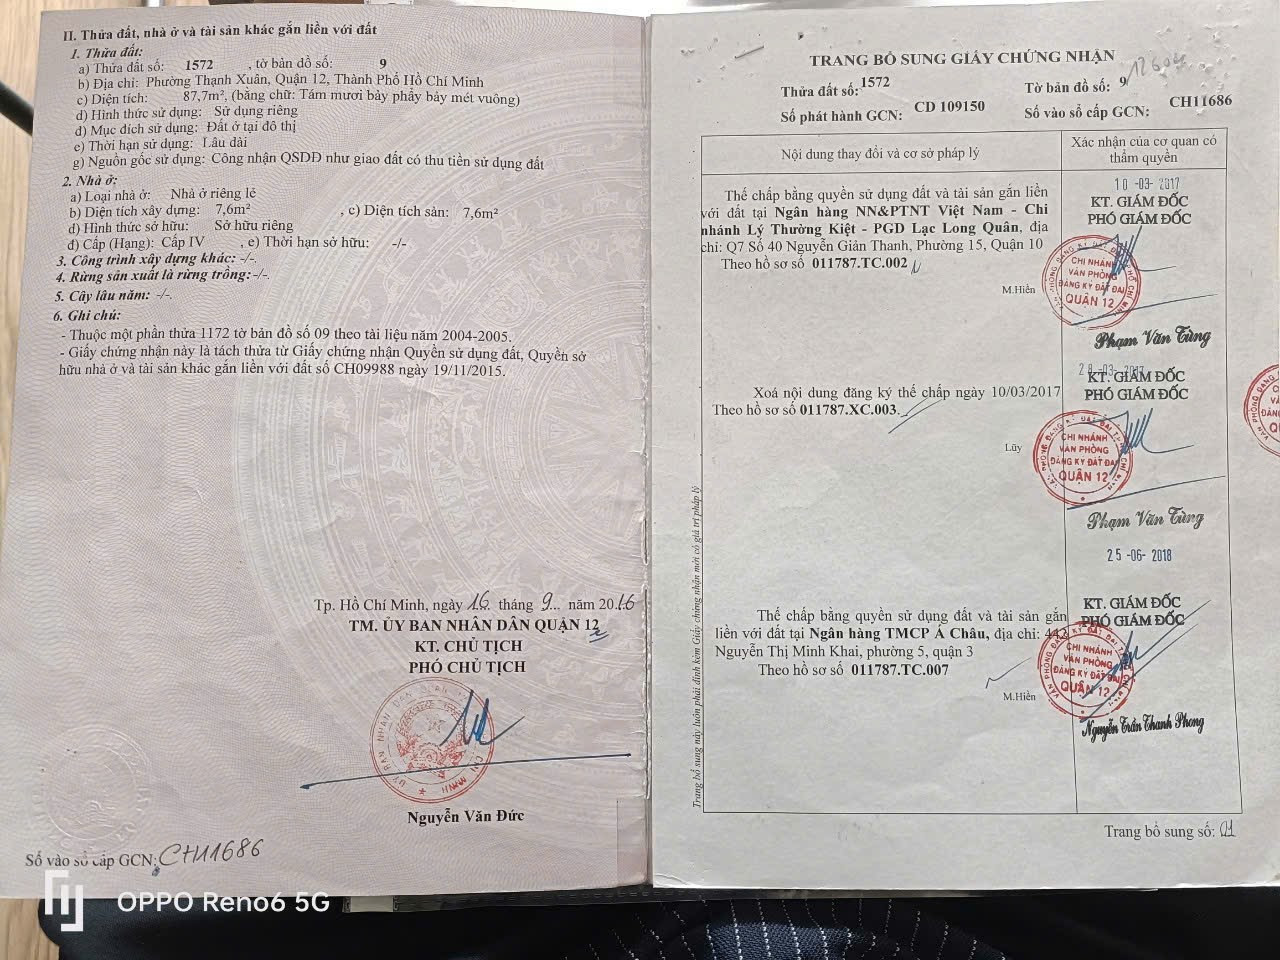 II. Thửa đất, nhà ở và tài sản khác gắn liền với đất
1. Thửa đất:
a) Thửa đất số: 1572 , tờ bản đồ số: 9
b) Địa chỉ: Phường Thạnh Xuân, Quận 12, Thành Phố Hồ Chí Minh
c) Diện tích: 87,7m², (bằng chữ: Tám mươi bảy phẩy bảy mét vuông)
d) Hình thức sử dụng: Sử dụng riêng
đ) Mục đích sử dụng: Đất ở tại đô thị
e) Thời hạn sử dụng: Lâu dài
g) Nguồn gốc sử dụng: Công nhận QSDĐ như giao đất có thu tiền sử dụng đất
2. Nhà ở:
a) Loại nhà ở: Nhà ở riêng lẻ
b) Diện tích xây dựng: 7,6m² , c) Diện tích sàn: 7,6m²
d) Hình thức sở hữu: Sở hữu riêng
đ) Cấp (Hạng): Cấp IV , e) Thời hạn sở hữu: -/-
3. Công trình xây dựng khác: -/-.
4. Rừng sản xuất là rừng trồng:-/-.
5. Cây lâu năm: -/-.
6. Ghi chú:
- Thuộc một phần thửa 1172 tờ bản đồ số 09 theo tài liệu năm 2004-2005.
- Giấy chứng nhận này là tách thửa từ Giấy chứng nhận Quyền sử dụng đất, Quyền sở
hữu nhà ở và tài sản khác gắn liền với đất số CH09988 ngày 19/11/2015.
Tp. Hồ Chí Minh, ngày 16 tháng 9... năm 2016
TM. ỦY BAN NHÂN DÂN QUẬN 12
KT. CHỦ TỊCH
PHÓ CHỦ TỊCH
Nguyễn Văn Đức
Số vào sổ cấp GCN: CH11686
OPPO Reno6 5G
TRANG BỔ SUNG GIẤY CHỨNG NHẬN
Thửa đất số: 1572 Tờ bản đồ số: 9
Số phát hành GCN: CD 109150 Số vào sổ cấp GCN: CH11686
Nội dung thay đổi và cơ sở pháp lý
Xác nhận của cơ quan có
thẩm quyền
Thế chấp bằng quyền sử dụng đất và tài sản gắn liền
với đất tại Ngân hàng NN&PTNT Việt Nam - Chi
nhánh Lý Thường Kiệt - PGD Lạc Long Quân, địa
chỉ: Q7 Số 40 Nguyễn Giản Thanh, Phường 15, Quận 10
Theo hồ sơ số 011787.TC.002
M.Hiền
10 -03- 2017
KT. GIÁM ĐỐC
PHÓ GIÁM ĐỐC
CHI NHÁNH
VĂN PHÒNG
ĐĂNG KÝ ĐẤT ĐAI
QUẬN 12
Phạm Văn Tùng
Xoá nội dung đăng ký thế chấp ngày 10/03/2017
Theo hồ sơ số 011787.XC.003.
Lũy
28 -03- 2017
KT. GIÁM ĐỐC
PHÓ GIÁM ĐỐC
CHI NHÁNH
VĂN PHÒNG
ĐĂNG KÝ ĐẤT ĐAI
QUẬN 12
Phạm Văn Tùng
25 -06- 2018
Thế chấp bằng quyền sử dụng đất và tài sản gắn
liền với đất tại Ngân hàng TMCP Á Châu, địa chỉ: 442
Nguyễn Thị Minh Khai, phường 5, quận 3
Theo hồ sơ số 011787.TC.007
M.Hiền
KT. GIÁM ĐỐC
PHÓ GIÁM ĐỐC
CHI NHÁNH
VĂN PHÒNG
ĐĂNG KÝ ĐẤT ĐAI
QUẬN 12
Nguyễn Trần Thanh Phong
Trang bổ sung này luôn phải đính kèm Giấy chứng nhận mới có giá trị pháp lý
Trang bổ sung số: 01